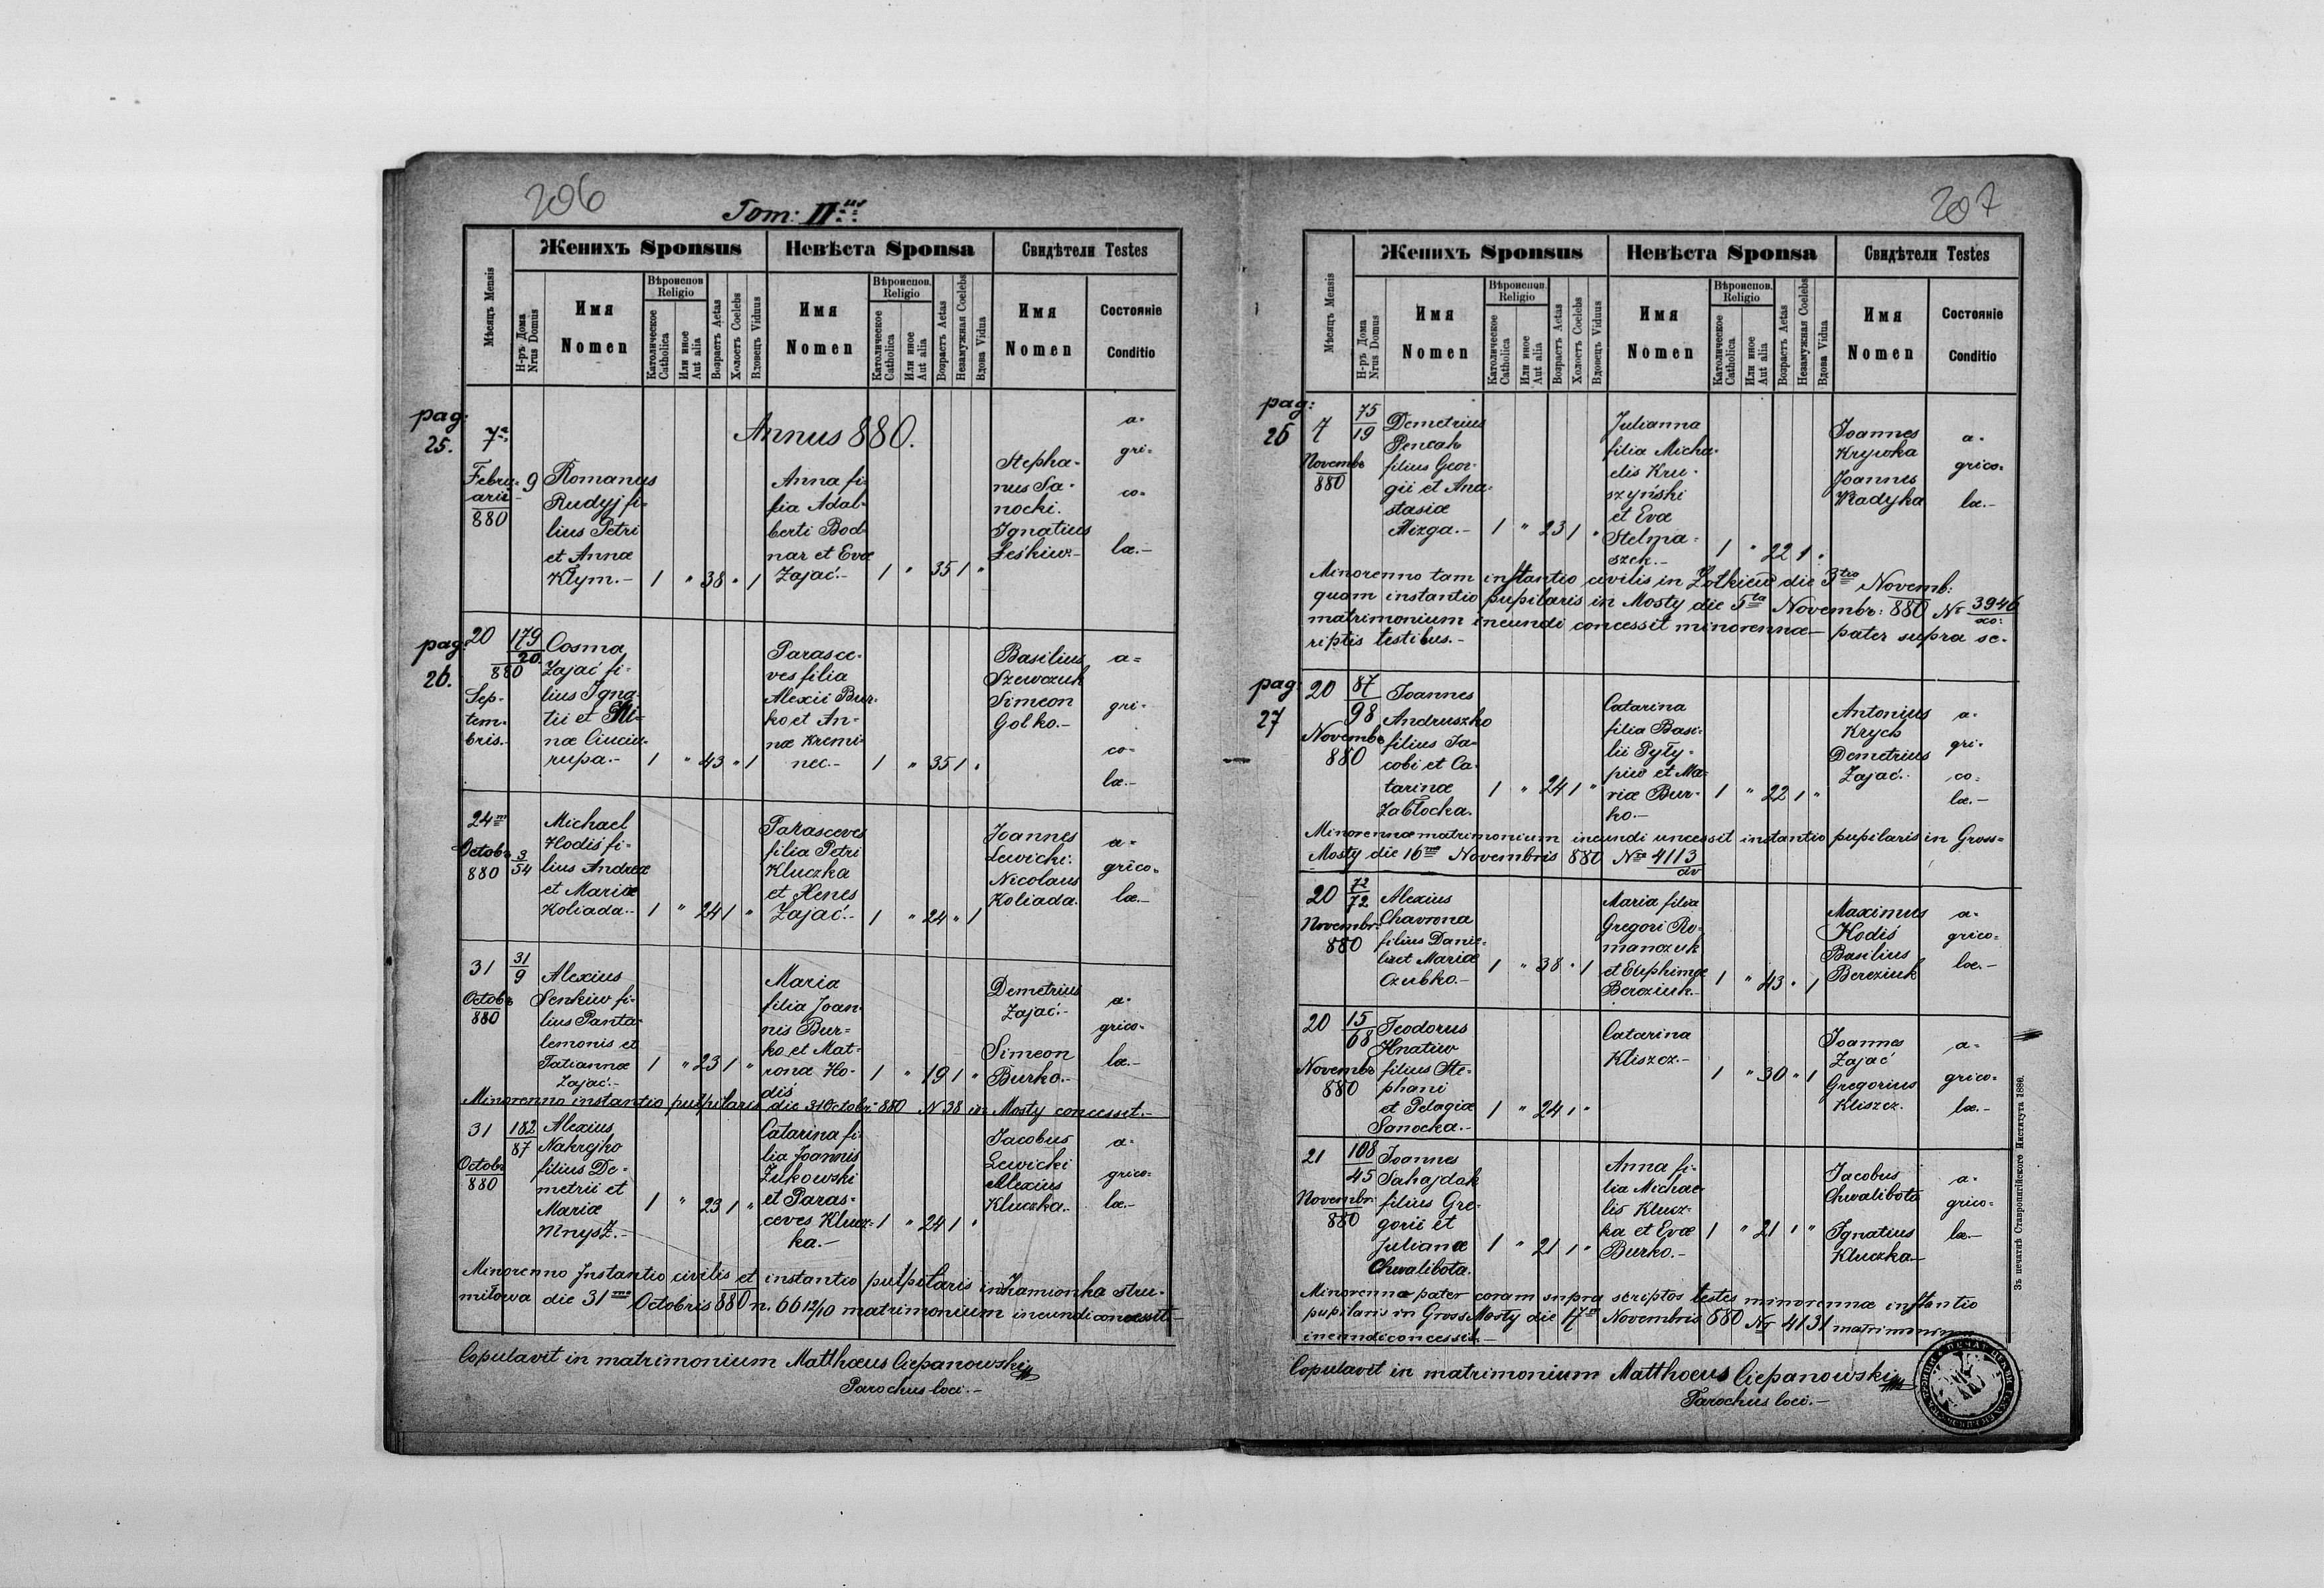 206
Tom: II us
Мѣсяцъ Mensis
Н-ръ Дома
Nrus Domus
Женихъ Sponsus
Невѣста Sponsa
Свидѣтели Testes
Имя
Nomen
Вѣроиспов
Religio
Католическое
Catholica
Или иное
Aut alia
Возрастъ Aetas
Холостъ Coelebs
Вдовецъ Viduus
Имя
Nomen
Вѣроиспов.
Religio
Католическое
Catholica
Или иное
Aut alia
Возрастъ Aetas
Незамужная Coelebs
Вдова Vidua
Имя
Nomen
Состоянie
Conditio
pag:
25.
Annus 880.
7a
Febru-
arii
880
9
Romanus
Rudyj fi-
lius Petri
et Anna
Kłym.-
1 " 38 " 1
Anna fi-
lia Adal-
berti Bod-
nar et Evæ
Zajać.-
1 " 35 1 "
Stepha-
nus Sa-
nocki.
Ignatius
Leśkiw.-
a-
gri-
co-
læ.-
pag:
26.
20
179
20
880
Sep-
tem-
bris.-
Cosma
Zajać fi-
lius Igna-
tii et
næ Ciuciu-
rupa.-
1 " 43 " 1
Parasce-
ves filia
Alexii Bur-
ko et An-
næ Kremi-
nec.-
1 " 35 1 "
Basilius
Szewczuk
Simeon
Golko.-
a-
gri-
co-
læ.-
24m
Octobr
880
3
54
Michael
Hodiś fi-
lius Andreæ
et Mariæ
Koliada.-
1 " 24 1 "
Parasceves
filia Petri
Kluczka
et Henes
Zajać.-
1 " 24 " 1
Joannes
Lewicki.
Nicolaus
Koliada.
a-
grico-
læ.-
31
Octobr
880
31
9
Alexius
Senkiw fi-
lius Panta-
lemonis et
Tatiannæ
Zajać.-
1 " 23 1 "
Maria
filia Joan-
nis Bur-
ko et Mat-
ronæ Ho-
dis
1 " 19 1 "
Demetrius
Zajać.-
Simeon
Burko.-
a-
grico-
læ.-
Minorenno instantio pupilaris die 31 Octobr 880 N 38 in Mosty concessit.-
31
Octobr
880
182
87
Alexius
Nahrejko
filius De-
metrii et
Mariæ
Mnysz.-
1 " 23 1 "
Catarina fi-
lia Joannis
Żukowski
et Paras-
ceves Klucz-
ka.-
1 " 24 1 "
Jacobus
Lewicki
Alexius
Kluczka.-
a-
grico-
læ.-
Minorenno Instantio civilis et instantio pupilaris in Kamionka stru-
miłowa die 31mo Octobris 880 n. 66 12/10 matrimonium ineundi concessit.-
Copulavit in matrimonium Matthæus Ciepanowski
Parochus loci.-
207
Мѣсяцъ Mensis
Н-ръ Дома
Nrus Domus
Женихъ Sponsus
Невѣста Sponsa
Свидѣтели Testes
Имя
Nomen
Вѣроиспов.
Religio
Католическое
Catholica
Или иное
Aut alia
Возрастъ Aetas
Холостъ Coelebs
Вдовецъ Viduus
Имя
Nomen
Вѣроиспов.
Religio
Католическое
Catholica
Или иное
Aut alia
Возрастъ Aetas
Незамужная Coelebs
Вдова Vidua
Имя
Nomen
Состоянie
Conditio
pag:
26
7
Novembr
880
75
19
Demetrius
Pencak
filius Geor-
gii et Ana-
stasiæ
Mizga.-
1 " 23 1 "
Julianna
filia Micha-
elis Kru-
szyński
et Evæ
Stelma-
szek.-
1 " 22 1 "
Joannes
Krywka
Joannes
Władyka
a-
grico-
læ.-
Minorenno tam instantio civilis in Żołkiew die 3tio Novemb:
quam instantio pupilaris in Mosty die 5ta Novembr: 880 Nr 3946
matrimonium ineundi concessit minorennæ pater supra sc-
riptis testibus.-
pag:
27
20
Novembr
880
87
98
Joannes
Andruszko
filius Ja-
cobi et Ca-
tarinæ
Zabłocka.
1 " 24 1 "
Catarina
filia Basi-
lii Pyły-
piw et Ma-
riæ Bur-
ko.-
1 " 22 1 "
Antonius
Krych
Demetrius
Zajać.
a-
gri-
co-
læ.-
Minorennæ matrimonium ineundi concessit instantio pupilaris in Gross-
Mosty die 16mo Novembris 880 Nro 4113
20
Novembr:
880
72
72
Alexius
Chavrona
filius Danie-
lis et Mariæ
Czubko.-
1 " 38 " 1
Maria filia
Gregori Ro-
manczuk
et Euphimiæ
Bereziuk.-
1 " 43 " 1
Maximus
Hodiś
Basilius
Bereziuk
a-
grico-
læ.-
20
Novembr
880
15
68
Teodorus
Hnatiw
filius Ste-
phani
et Pelagiæ
Sanocka.-
1 " 24 1 "
Catarina
Kliszcz.-
1 " 30 " 1
Joannes
Zajać
Gregorius
Kliszcz.
a-
grico-
læ.-
21
Novembr
880
108
45
Joannes
Sahajdak
filius Gre-
gorii et
Julianæ
Chwalibota.
1 " 21 1 "
Anna fi-
lia Michae-
lis Klucz-
ka et Evæ
Burko.-
1 " 21 1 "
Jacobus
Chwalibota
Ignatius
Kluczka.-
a-
grico-
læ.-
Minorennæ pater coram supra scriptos testes minorennæ instantio
pupilaris in Gross Mosty die 17m Novembris 880 Nr 4131 matrimonium
ineundi concessit.-
Copulavit in matrimonium Matthæus Ciepanowski
Parochus loci.-
Зъ печатнѣ Ставропигійского Института 1886.